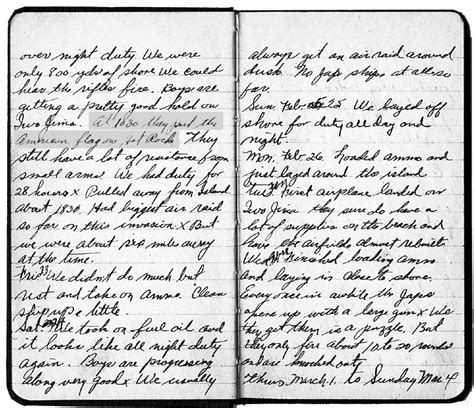 over night duty We were
only 800 yds of shore We could
hear the rifles fire. Boys are
getting a pretty good hold on
Iwo Jima. At 1030 they put the
American flag on Hot Rock They
still have a lot of resistance from
small arms. We had duty for
28 hours x Pulled away from Island
about 1830. Had biggest air raid
so far on this invasion x But
we were about miles away
at the time.
Fri We didn't do much but
rest and take on ammo. Clean
ship up a little.
Sat We took on fuel oil and
it looks like all night duty
again. Boys are progressing
along very good x We usually
always get an air raid around
dusk No Jap ships at all so
far.
Sun. Feb 25 We layed off
shore for duty all day and
night.
Mon. Feb 26. Loaded ammo and
just layed around the island
Tues. First airplane landed on
Iwo Jima they sure do have a
lot of supplies on the beach and
have airfields almost rebuilt
Wed Finished loading ammo
and laying in close to shore.
Every once in awhile the Japs
opens up with a large gun x We
they get them is a puzzle. But
they only fire about 10 to 20 rounds
and are knocked out
Thurs. March 1. to Sunday Mar 4